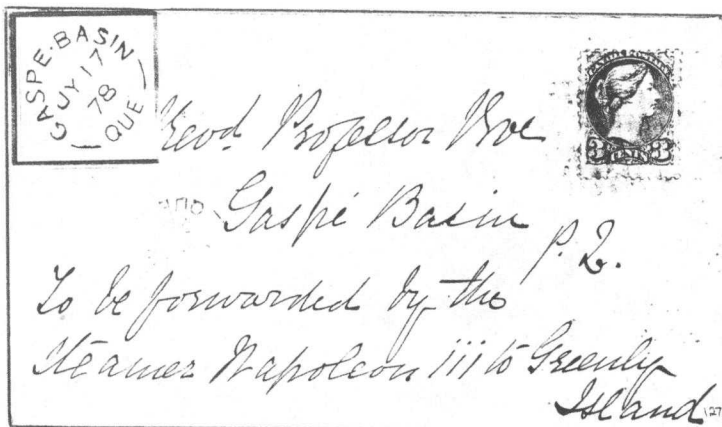 GASPE·BASIN
JY 17
78
QUE
Revd. Professor Roe
Gaspé Basin
P. Q.
To be forwarded by the
Steamer Napoleon iii to Greenly
Island
3 CENTS 3